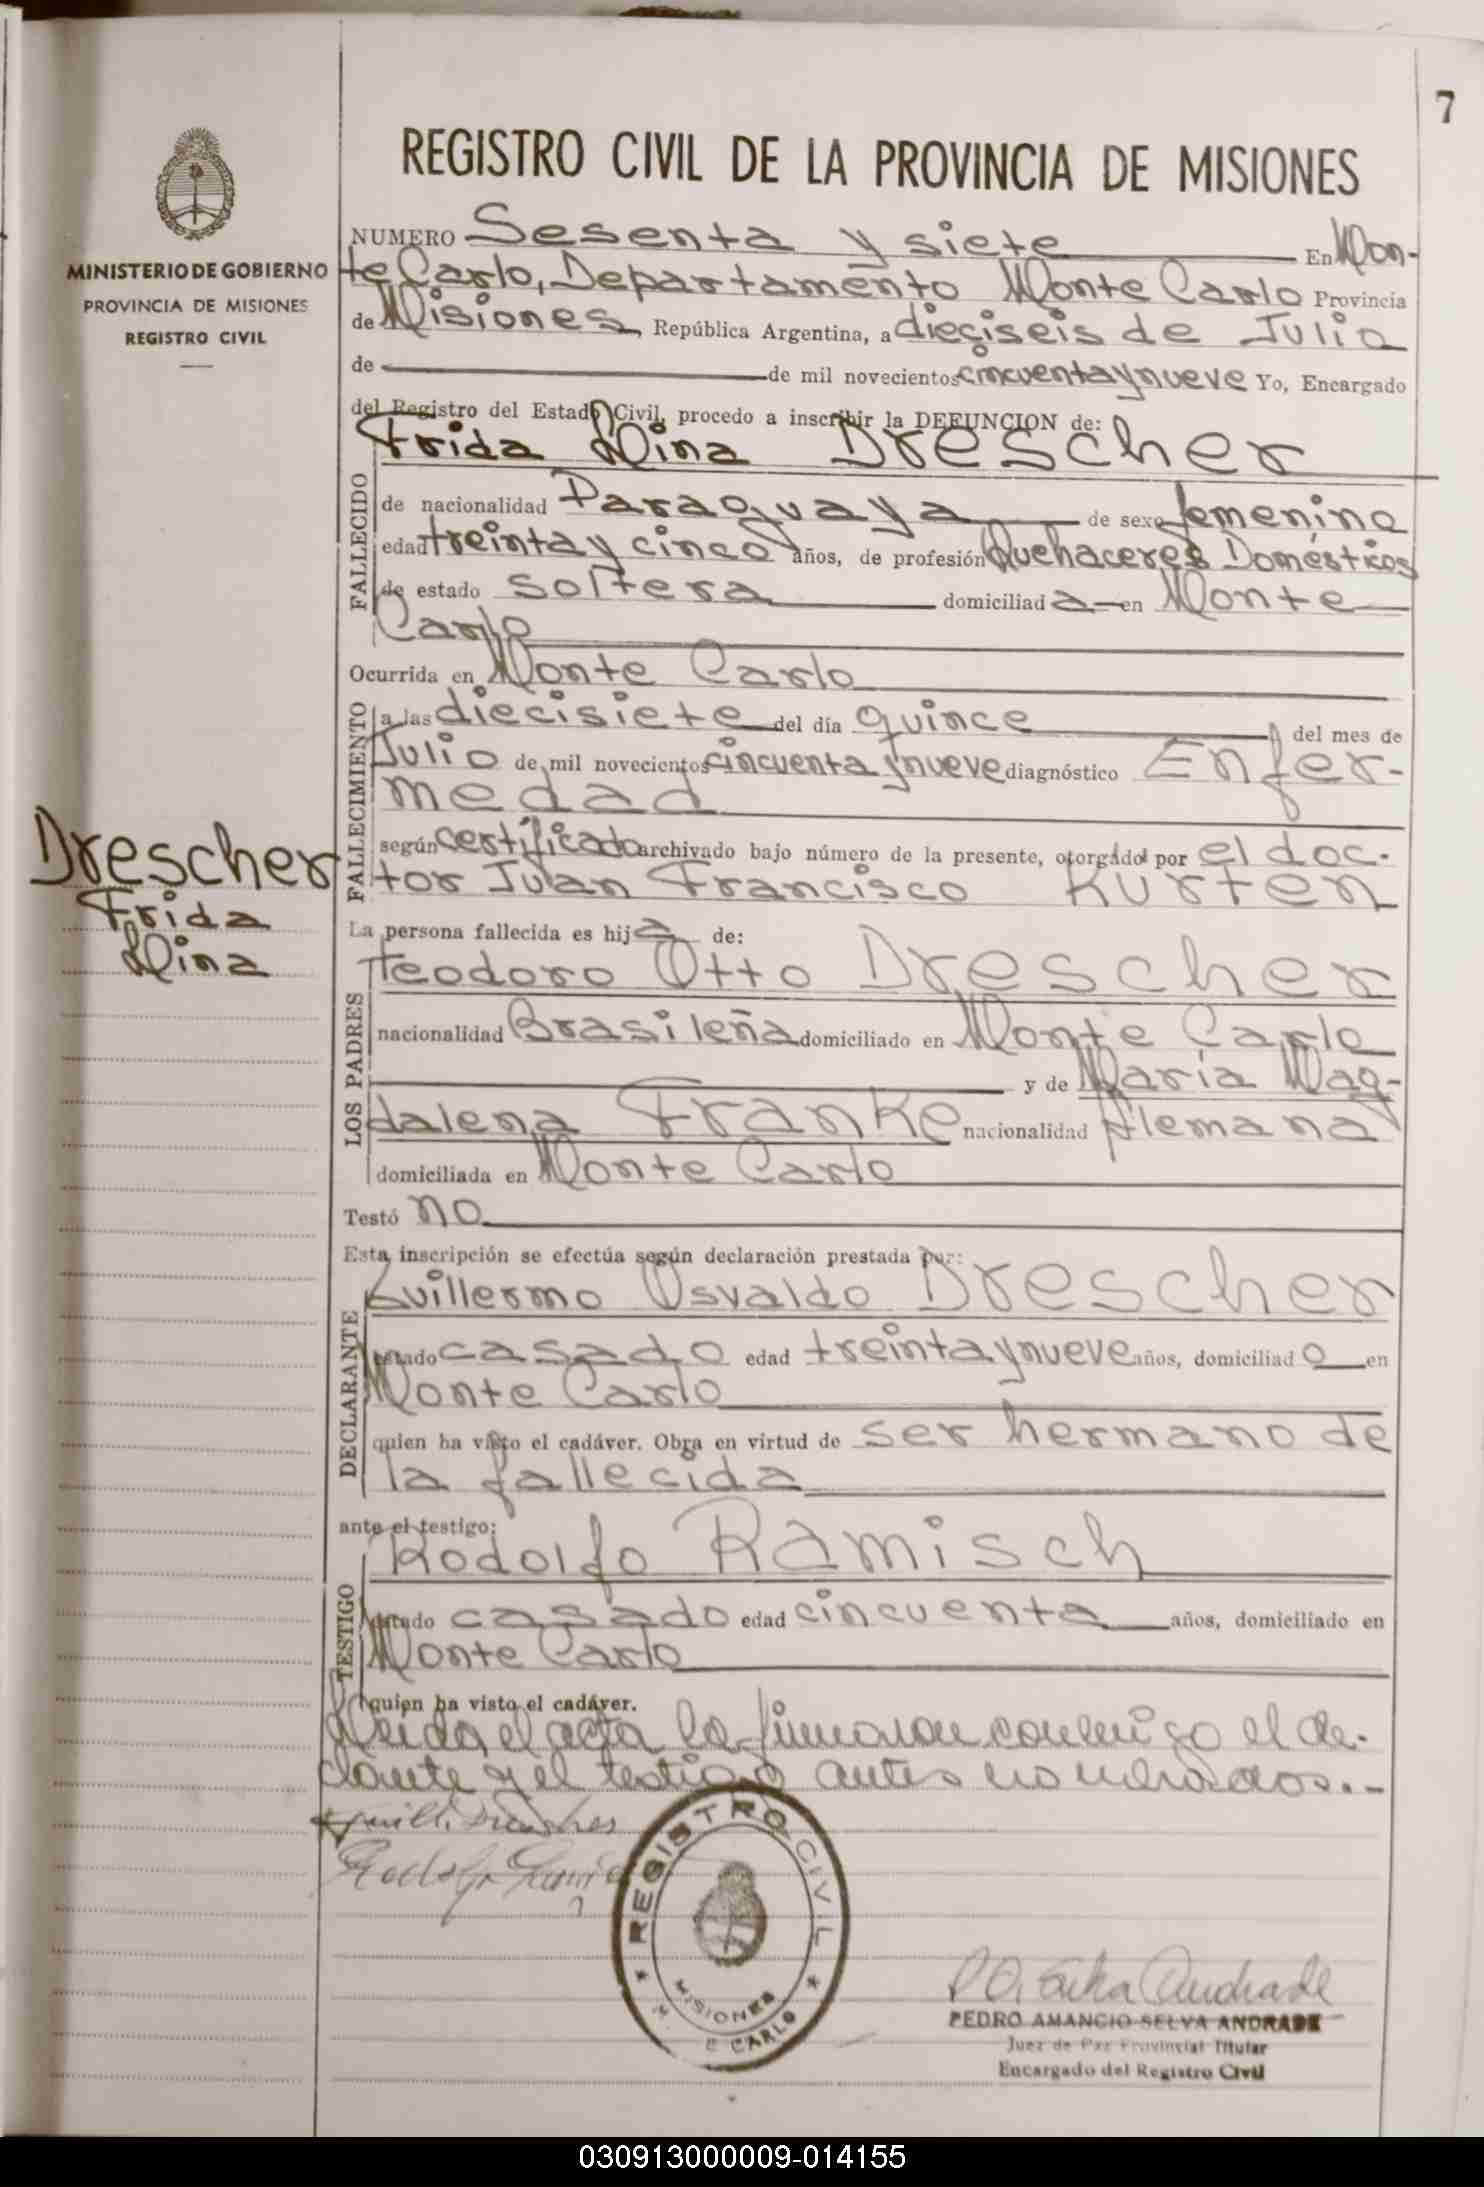 7
REGISTRO CIVIL DE LA PROVINCIA DE MISIONES
MINISTERIO DE GOBIERNO
PROVINCIA DE MISIONES
REGISTRO CIVIL
NUMERO Sesenta y siete En Mon-
te Carlo, Departamento Monte Carlo Provincia
de Misiones, República Argentina, a dieciseis de Julio
de de mil novecientos cincuenta y nueve Yo, Encargado
del Registro del Estado Civil, procedo a inscribir la DEFUNCION de:
Frida Mina Drescher
FALLECIDO
de nacionalidad Paraguaya de sexo femenino
edad treinta y cinco años, de profesión Quehaceres Domésticos
de estado soltera domiciliad a en Monte
Carlo
Ocurrida en Monte Carlo
FALLECIMIENTO
a las diecisiete del día quince del mes de
Julio de mil novecientos cincuenta y nueve diagnóstico Enfer-
medad
según certificado archivado bajo número de la presente, otorgado por el doc-
tor Juan Francisco Kurten
Drescher
Frida
Mina
La persona fallecida es hij a de:
LOS PADRES
Teodoro Otto Drescher
nacionalidad Brasileña domiciliado en Monte Carlo
y de María Mag-
dalena Franke nacionalidad Alemana
domiciliada en Monte Carlo
Testó no
Esta inscripción se efectúa según declaración prestada por:
DECLARANTE
Guillermo Osvaldo Drescher
estado casado edad treinta y nueve años, domiciliad o en
Monte Carlo
quien ha visto el cadáver. Obra en virtud de ser hermano de
la fallecida
ante el testigo:
TESTIGO
Rodolfo Ramisch
estado casado edad cincuenta años, domiciliado en
Monte Carlo
quien ha visto el cadáver.
Leida el acta la firmaron conmigo el de-
clarante y el testigo antes nombrados.-
REGISTRO CIVIL
MISIONES
CARLO
PEDRO AMANCIO SELVA ANDRADE
Juez de Paz Provincial Titular
Encargado del Registro Civil
030913000009-014155